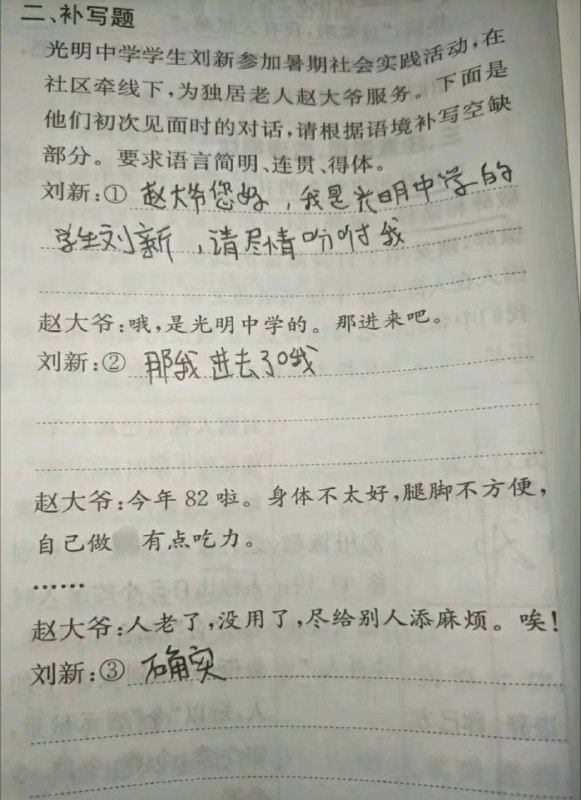 二、补写题
光明中学学生刘新参加暑期社会实践活动,在
社区牵线下,为独居老人赵大爷服务。下面是
他们初次见面时的对话,请根据语境补写空缺
部分。要求语言简明、连贯、得体。
刘新:① 赵大爷您好,我是光明中学的
学生刘新,请尽情吩咐我
赵大爷:哦,是光明中学的。那进来吧。
刘新:② 那我进去了哦
赵大爷:今年82啦。身体不太好,腿脚不方便,
自己做 有点吃力。
……
赵大爷:人老了,没用了,尽给别人添麻烦。唉!
刘新:③ 确实